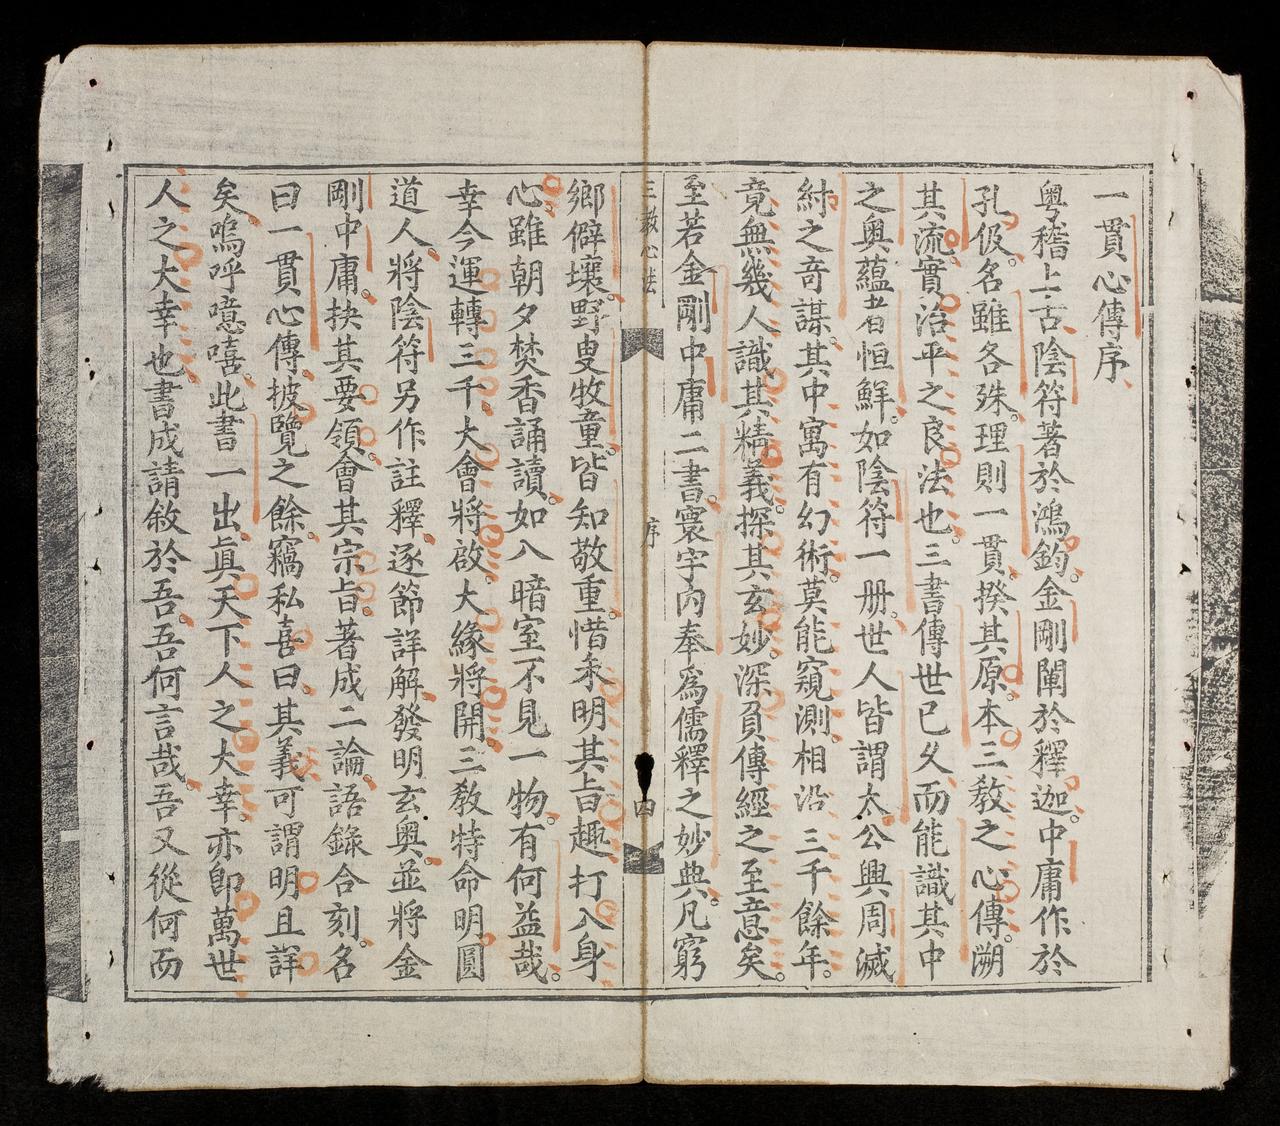 一貫心傳序
粤稽上古陰符著於鴻鈞。金剛闡於釋迦。中庸作於
孔伋。名雖各殊。理則一貫。揆其原。本三敎之心傳。溯
其流。實治平之良法也。三書傳世已久。而能識其中
之奥蘊者恒鮮。如陰符一册。世人皆謂太公興周滅
紂之奇謀。其中寓有幻術。莫能窺測。相沿三千餘年。
竟無幾人識其精義。探其玄妙。深負傳經之至意矣。
至若金剛中庸二書。寰宇內奉爲儒釋之妙典。凡窮
三教心法 序 四
鄉僻壤。野叟牧童。皆知敬重。惜未明其旨趣。打入身
心。雖朝夕焚香誦讀。如入暗室不見一物。有何益哉。
幸今運轉三千。大會將啟。大緣將開。三敎特命明圓
道人。將陰符另作註釋。逐節詳解。發明玄奥。並將金
剛中庸。抉其要領。會其宗旨。著成二論。語錄合刻。名
曰一貫心傳。披覽之餘。竊私喜曰。其義可謂明且詳
矣。嗚呼噫嘻。此書一出。眞天下人之大幸。亦卽萬世
人之大幸也。書成請敘於吾。吾何言哉。吾又從何而